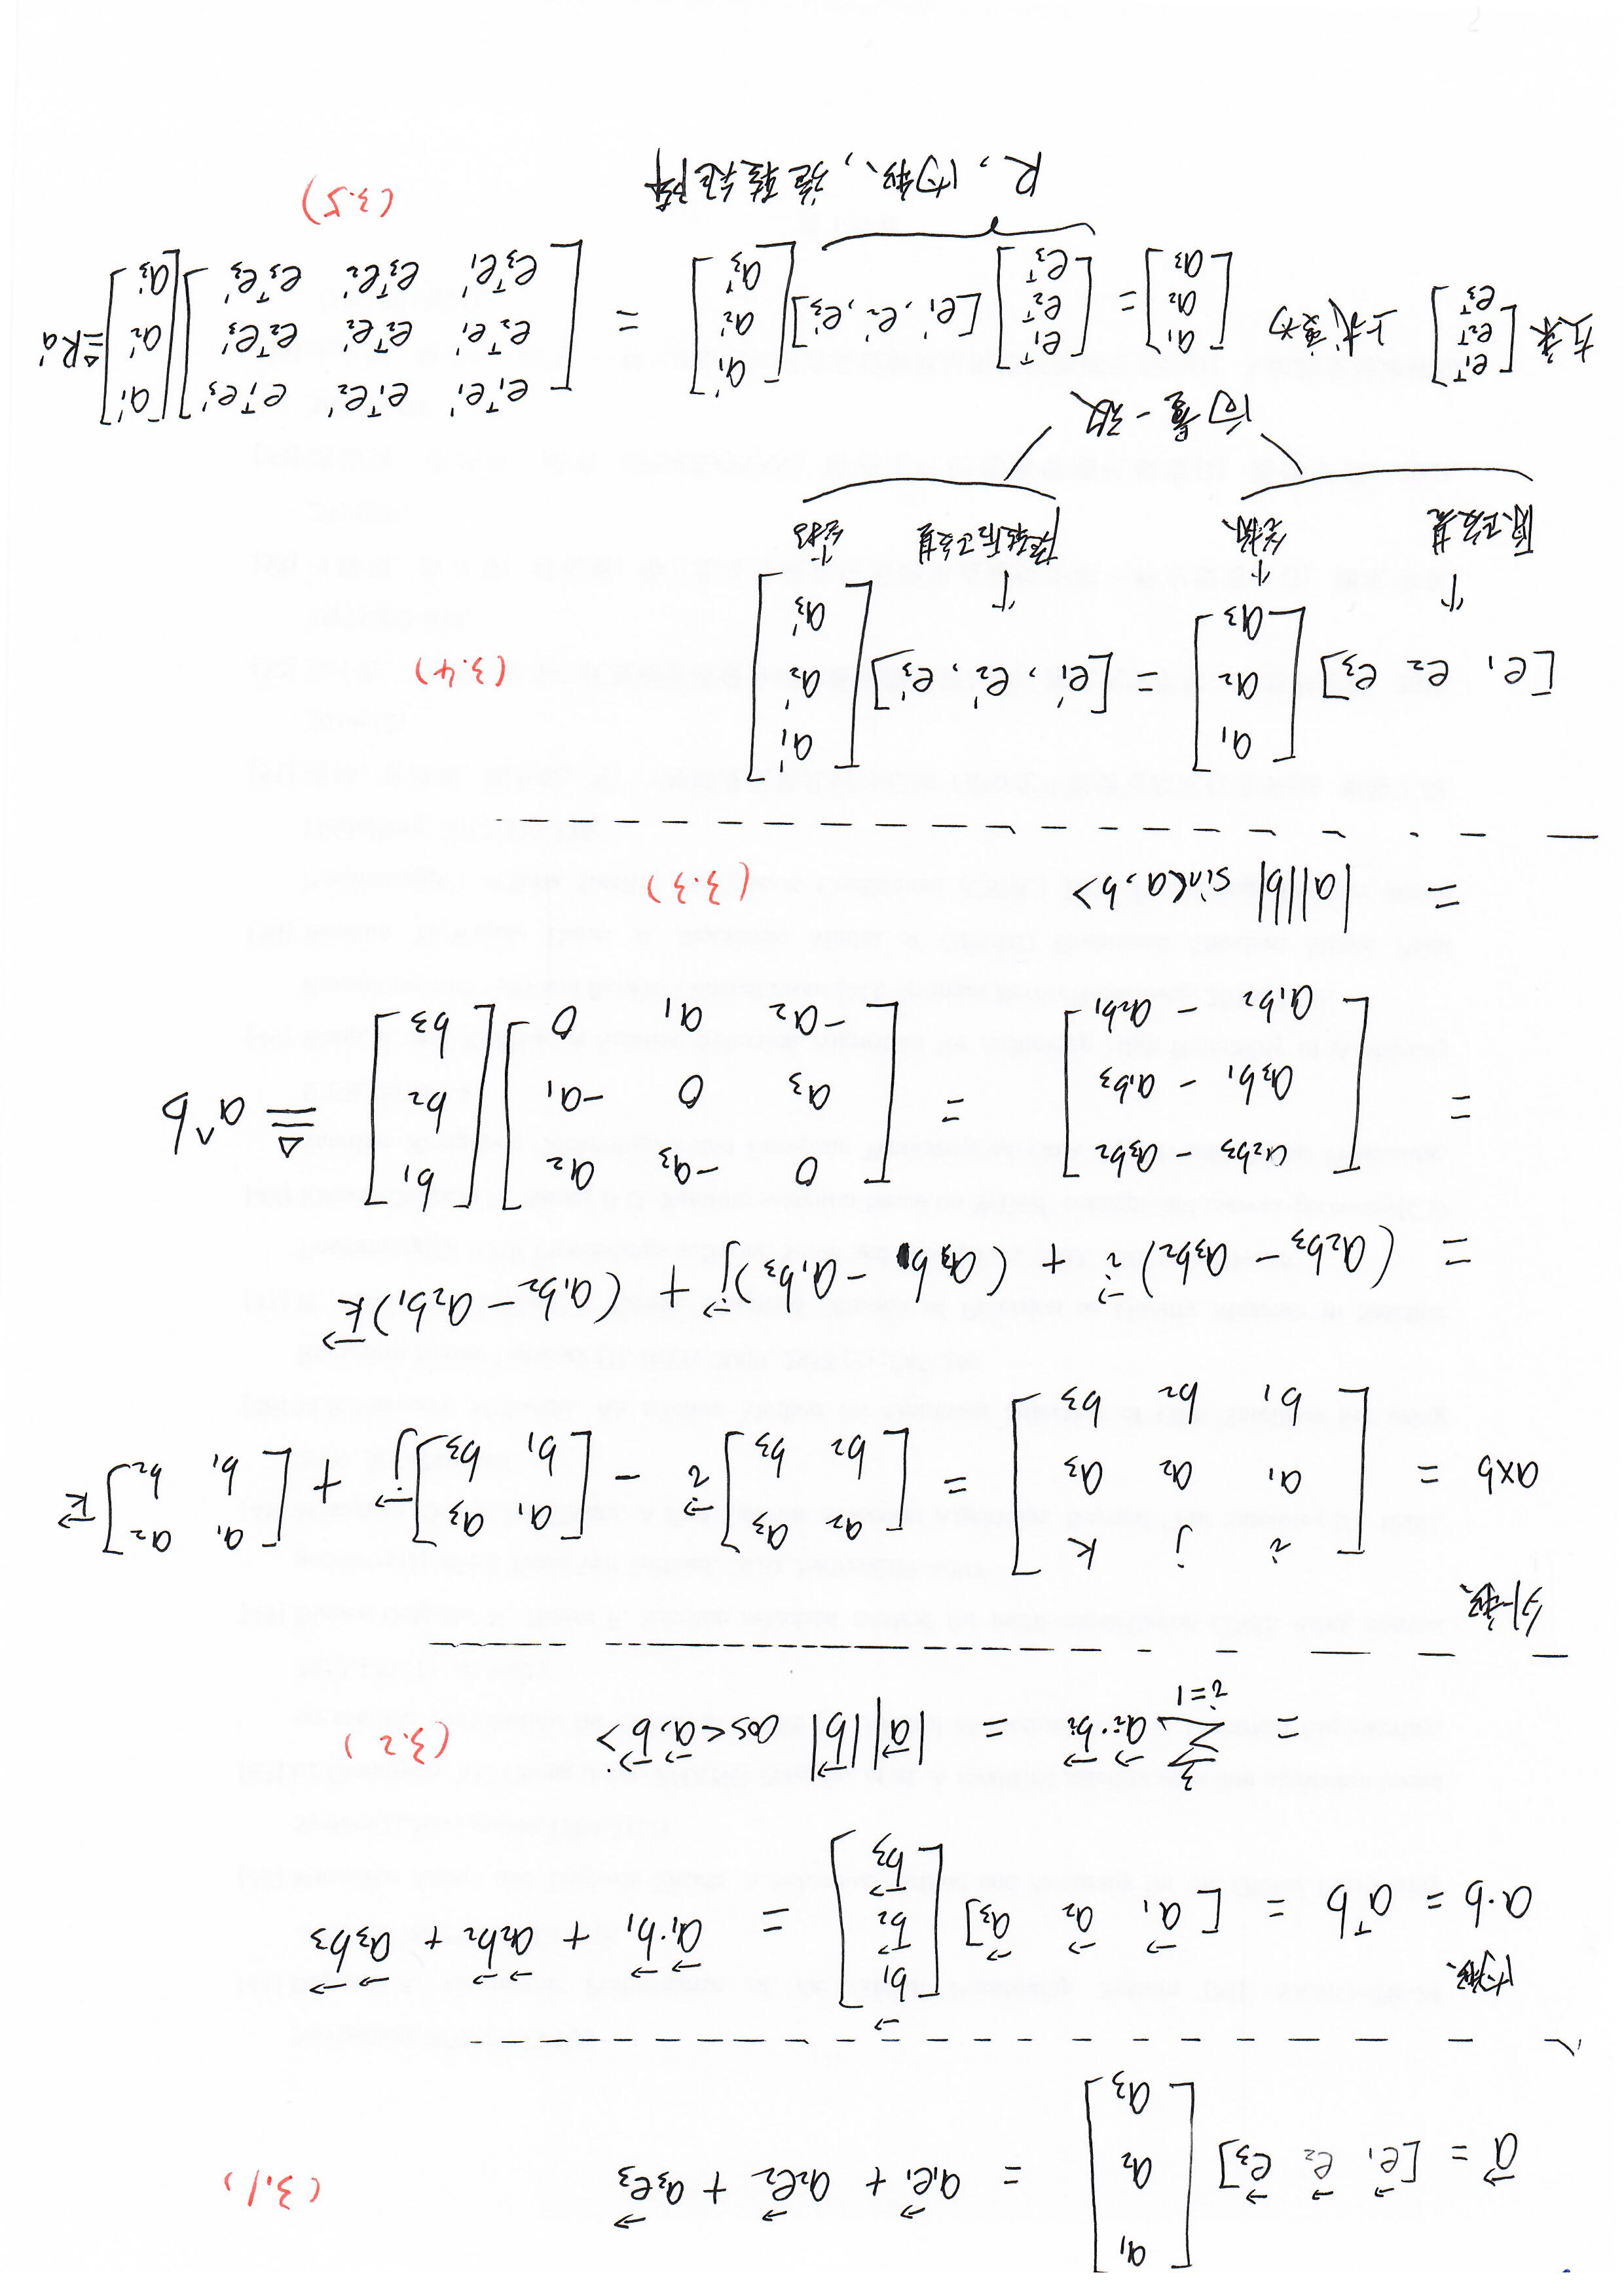 $\vec{a} = [\vec{e_1} \ \vec{e_2} \ \vec{e_3}] \begin{bmatrix} a_1 \\ a_2 \\ a_3 \end{bmatrix} = a_1\vec{e_1} + a_2\vec{e_2} + a_3\vec{e_3}$ (3.1)
内积
$a \cdot b = a^T b = [\vec{a_1} \ \vec{a_2} \ \vec{a_3}] \begin{bmatrix} \vec{b_1} \\ \vec{b_2} \\ \vec{b_3} \end{bmatrix} = \vec{a_1} \cdot \vec{b_1} + \vec{a_2}\vec{b_2} + \vec{a_3}\vec{b_3}$
$= \sum_{i=1}^{3} \vec{a_i} \cdot \vec{b_i} = |\vec{a}||\vec{b}| \cos<\vec{a},\vec{b}>$ (3.2)
外积
$a \times b = \begin{bmatrix} i & j & k \\ a_1 & a_2 & a_3 \\ b_1 & b_2 & b_3 \end{bmatrix} = \begin{bmatrix} a_2 & a_3 \\ b_2 & b_3 \end{bmatrix}\vec{i} - \begin{bmatrix} a_1 & a_3 \\ b_1 & b_3 \end{bmatrix}\vec{j} + \begin{bmatrix} a_1 & a_2 \\ b_1 & b_2 \end{bmatrix}\vec{k}$
$= (a_2b_3 - a_3b_2)\vec{i} + (a_3b_1 - a_1b_3)\vec{j} + (a_1b_2 - a_2b_1)\vec{k}$
$= \begin{bmatrix} a_2b_3 - a_3b_2 \\ a_3b_1 - a_1b_3 \\ a_1b_2 - a_2b_1 \end{bmatrix} = \begin{bmatrix} 0 & -a_3 & a_2 \\ a_3 & 0 & -a_1 \\ -a_2 & a_1 & 0 \end{bmatrix} \begin{bmatrix} b_1 \\ b_2 \\ b_3 \end{bmatrix} \triangleq a^\wedge b$
$= |a||b| \sin<a,b>$ (3.3)
$[e_1 \ e_2 \ e_3] \begin{bmatrix} a_1 \\ a_2 \\ a_3 \end{bmatrix} = [e_1', e_2', e_3'] \begin{bmatrix} a_1' \\ a_2' \\ a_3' \end{bmatrix}$ (3.4)
↑ ↑ ↑ ↑
原正交基 坐标 旋转后正交基 坐标
向量一致
左乘 $\begin{bmatrix} e_1^T \\ e_2^T \\ e_3^T \end{bmatrix}$ 上式变为 $\begin{bmatrix} a_1 \\ a_2 \\ a_3 \end{bmatrix} = \begin{bmatrix} e_1^T \\ e_2^T \\ e_3^T \end{bmatrix} [e_1', e_2', e_3'] \begin{bmatrix} a_1' \\ a_2' \\ a_3' \end{bmatrix} = \begin{bmatrix} e_1^Te_1' & e_1^Te_2' & e_1^Te_3' \\ e_2^Te_1' & e_2^Te_2' & e_2^Te_3' \\ e_3^Te_1' & e_3^Te_2' & e_3^Te_3' \end{bmatrix} \begin{bmatrix} a_1' \\ a_2' \\ a_3' \end{bmatrix} \triangleq Ra'$
(3.5)
R, 内积, 旋转矩阵